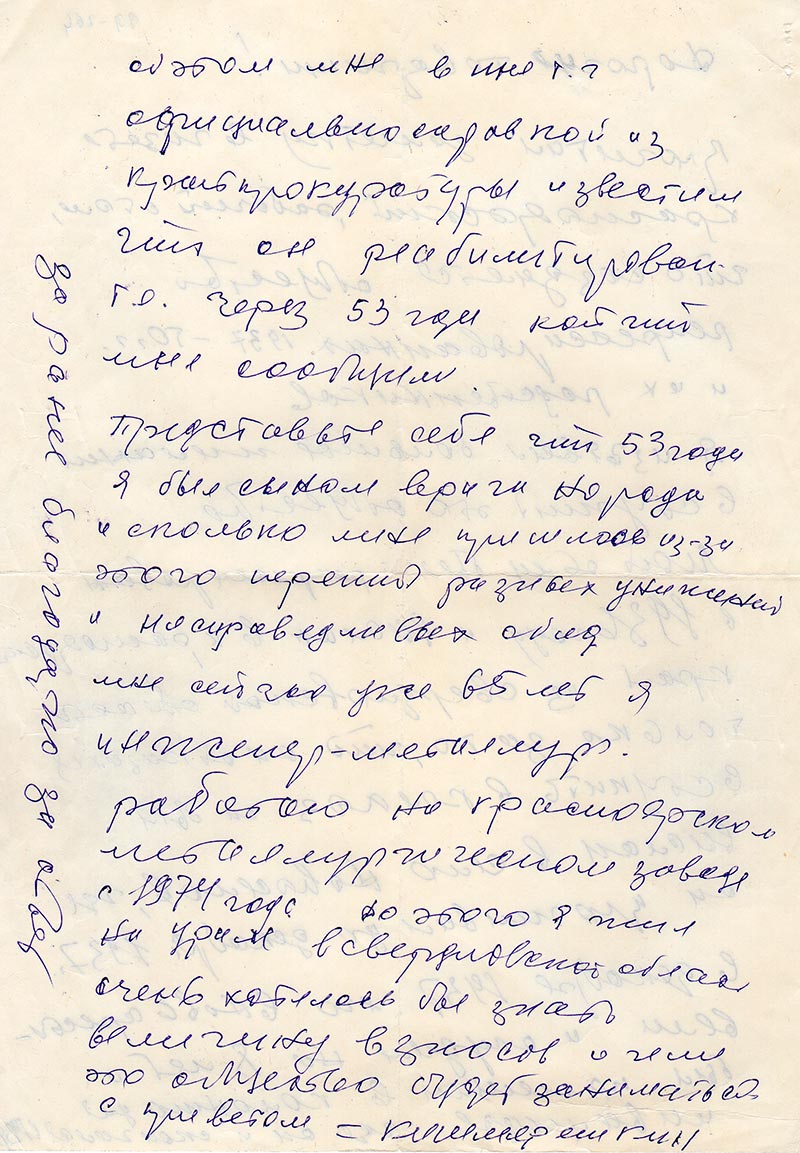 об этом мне в ине т.г
официально справкой из
крайпрокуратуры известили
что он реабилитирован.
т.е. через 53 года
мне сообщили.
Представьте себе что 53 года
я был сыном врага народа
и сколько мне пришлось из-за
этого перенести разных унижений
и несправедливых обид
мне сейчас уже 65 лет я
инженер-металлург.
работаю на красноярском
металлургическом заводе
с 1974 года до этого я жил
на урале в свердловской област
очень хотелось бы знать
величину взносов и чем
это общество будет заниматься
с приветом =
за ранее благодарю за ответ